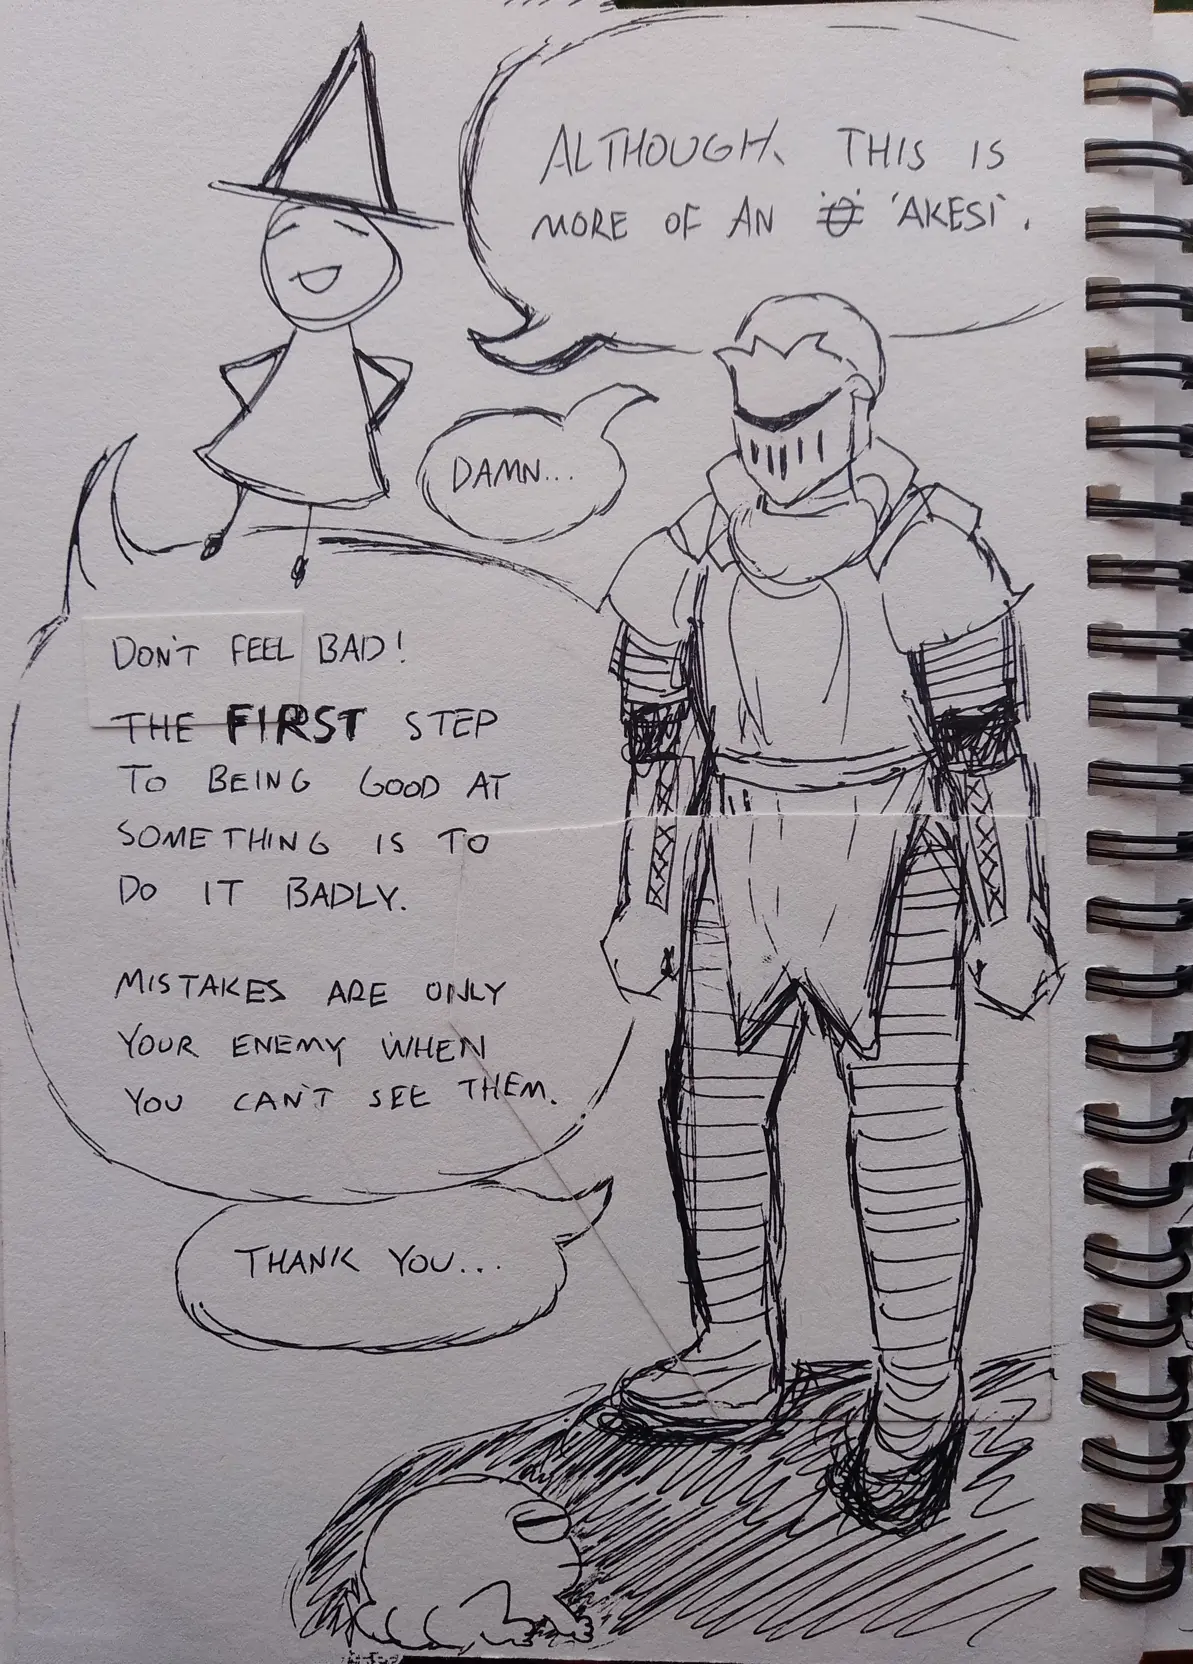 ALTHOUGH, THIS IS
MORE OF AN 'AKESI'.
DAMN...
DON'T FEEL BAD!
THE FIRST STEP
TO BEING GOOD AT
SOMETHING IS TO
DO IT BADLY.
MISTAKES ARE ONLY
YOUR ENEMY WHEN
YOU CAN'T SEE THEM.
THANK YOU...